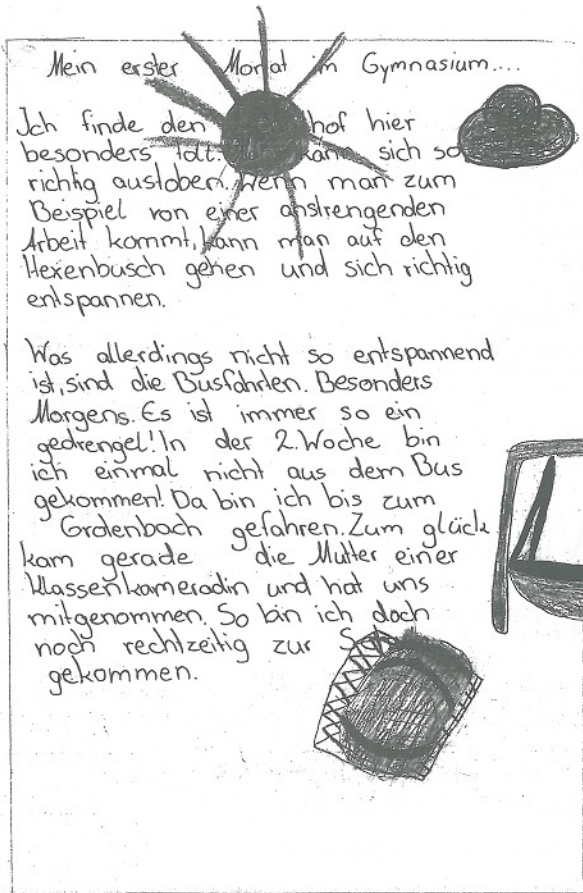 Mein erster Monat im Gymnasium....
Ich finde den hof hier
besonders toll. kann sich so
richtig austoben. Wenn man zum
Beispiel von einer anstrengenden
Arbeit kommt, kann man auf den
Hexenbusch gehen und sich richtig
entspannen.
Was allerdings nicht so entspannend
ist, sind die Busfahrten. Besonders
Morgens. Es ist immer so ein
gedrengel! In der 2. Woche bin
ich einmal nicht aus dem Bus
gekommen! Da bin ich bis zum
Grolenbach gefahren. Zum glück
kam gerade die Mutter einer
Klassenkameradin und hat uns
mitgenommen. So bin ich doch
noch rechtzeitig zur
gekommen.